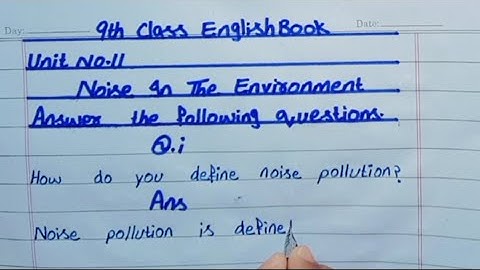 Day:
Date:
9th Class English Book
Unit No.11
Noise In The Environment
Answer the following questions.
Q.i
How do you define noise pollution?
Ans
Noise pollution is define